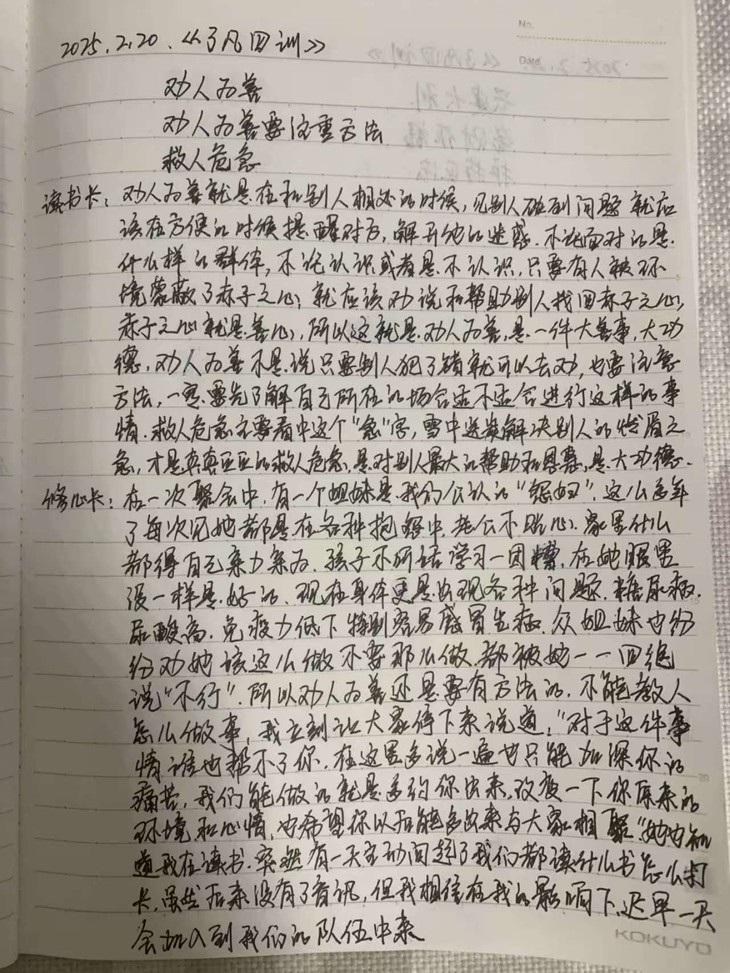 No.
Date
2025.2.20.《了凡四训》
劝人为善
劝人为善要注重方法
救人危急
读书卡：劝人为善就是在和别人相处的时候，见别人碰到问题就应
该在方便的时候提醒对方，解开他的迷惑。不论面对的是
什么样的群体，不论认识或者是不认识，只要有人被环
境蒙蔽了赤子之心，就应该劝说和帮助别人找回赤子之心，
赤子之心就是善心，所以这就是劝人为善，是一件大善事，大功
德。劝人为善不是说只要别人犯了错就可以去劝，也要注意
方法，一定要先了解自己所在的场合适不适合进行这样的事
情。救人危急主要看中这个“急”字，雪中送炭解决别人的燃眉之
急，才是真真正正的救人危急，是对别人最大的帮助和恩惠，是大功德。
修心卡：在一次聚会中，有一个姐妹是我们公认的“怨妇”，这么多年
了每次见她都是在各种抱怨中，老公不贴心，家里什么
都得自己亲力亲为，孩子不听话学习一团糟，在她眼里
没一样是好的，现在身体更是出现各种问题，糖尿病，
尿酸高，免疫力低下特别容易感冒生病，众姐妹也纷
纷劝她该这么做不要那么做，都被她一一回绝
说“不行”。所以劝人为善还是要有方法的，不能教人
怎么做事，我立刻让大家停下来说道，“对于这件事
情谁也帮不了你，在这里多说一遍也只能加深你的
痛苦，我们能做的就是多约你出来，改变一下你原来的
环境和心情，也希望你以后能多出来与大家相聚”她也知
道我在读书，突然有一天主动问起了我们都读什么书怎么打
卡，虽然后来没有了音讯，但我相信在我的影响下，迟早一天
会加入到我们的队伍中来
KOKUYO